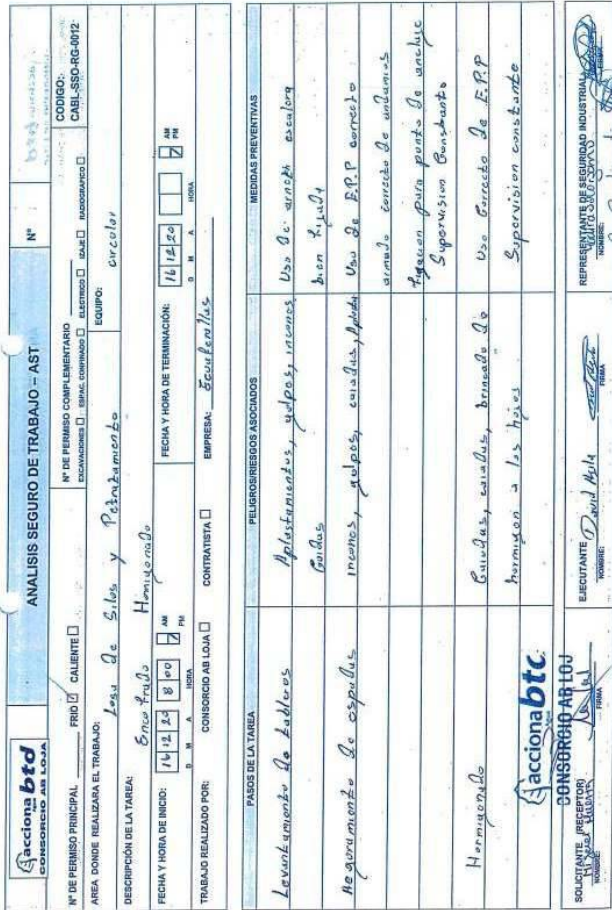 acciona btd
agua
CONSORCIO AB LOJA
ANALISIS SEGURO DE TRABAJO – AST
Nº
CODIGO:
CABL-SSO-RG-0012
Nº DE PERMISO PRINCIPAL FRIO ☑ CALIENTE ☐
Nº DE PERMISO COMPLEMENTARIO
EXCAVACIONES ☐ ESPAC. CONFINADO ☐ ELECTRICO ☐ IZAJE ☐ RADIOGRAFICO ☐
AREA DONDE REALIZARA EL TRABAJO: Losa de Silos y
EQUIPO: circular
DESCRIPCIÓN DE LA TAREA: Encofrado Hormigonado
FECHA Y HORA DE INICIO: 16 12 20 8 00 AM PM
D M A HORA
FECHA Y HORA DE TERMINACIÓN: 16 12 20 AM PM
D M A HORA
TRABAJO REALIZADO POR: CONSORCIO AB LOJA ☐ CONTRATISTA ☐ EMPRESA:
PASOS DE LA TAREA
PELIGROS/RIESGOS ASOCIADOS
MEDIDAS PREVENTIVAS
Levantamiento de tableros
Aplastamientos, golpes, incones
Caidas
Uso de arnes escalera
bien fijada
Aseguramiento de
incones, golpes, caidas,
Uso de E.P.P correcto
armado correcto de andamios
fijacion para punto de anclaje
Supervision Constante
Hormigonado
Caidas, caidas, brincado de
hormigon a los hojos
Uso Correcto de E.P.P
Supervision constante
acciona btd
CONSORCIO AB LOJ
SOLICITANTE (RECEPTOR)
NOMBRE: FIRMA
EJECUTANTE David
NOMBRE: FIRMA
REPRESENTANTE DE SEGURIDAD INDUSTRIAL
NOMBRE: FIRMA